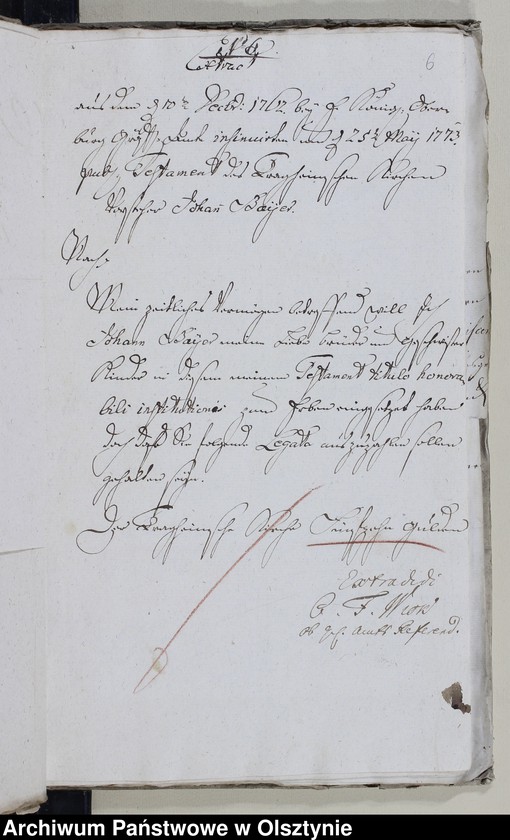 Extract
6
aus dem d 10t Decbr: 1762. bey E. König. Ober
burg Gräffl. Amte insinuirten und d 25t Maÿ 1773.
publ. Testament des Tragheimschen Kirchen
Vorsteher Johann Baÿer.
Mein zeitliches Vermögen betreffend will Ich
Johann Baÿer meine Liebe Brüder und Geschwister
Kinder in diesem meinem Testament titulo honora
bili institutionis zum Erben eingesetzet haben
doch daß Sie folgende Legata auszuzahlen sollen
gehalten seyn.
Der Tragheimschen Kirche Funfzehn gulden
Extradidi
Amts Referend.
Archiwum Państwowe w Olsztynie